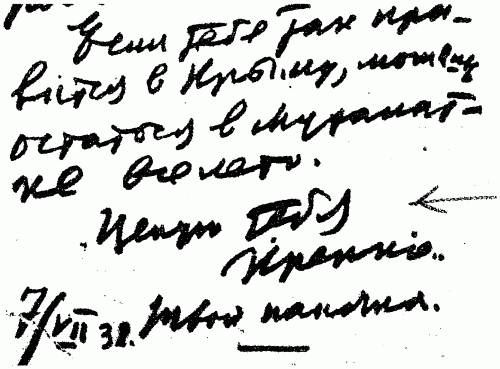 Если тебе так нра-
вится в Крыму, можешь
остаться в Мухалат-
ке все лето.
Целую тебя
крепко.
7/VII 38. Твой папочка.